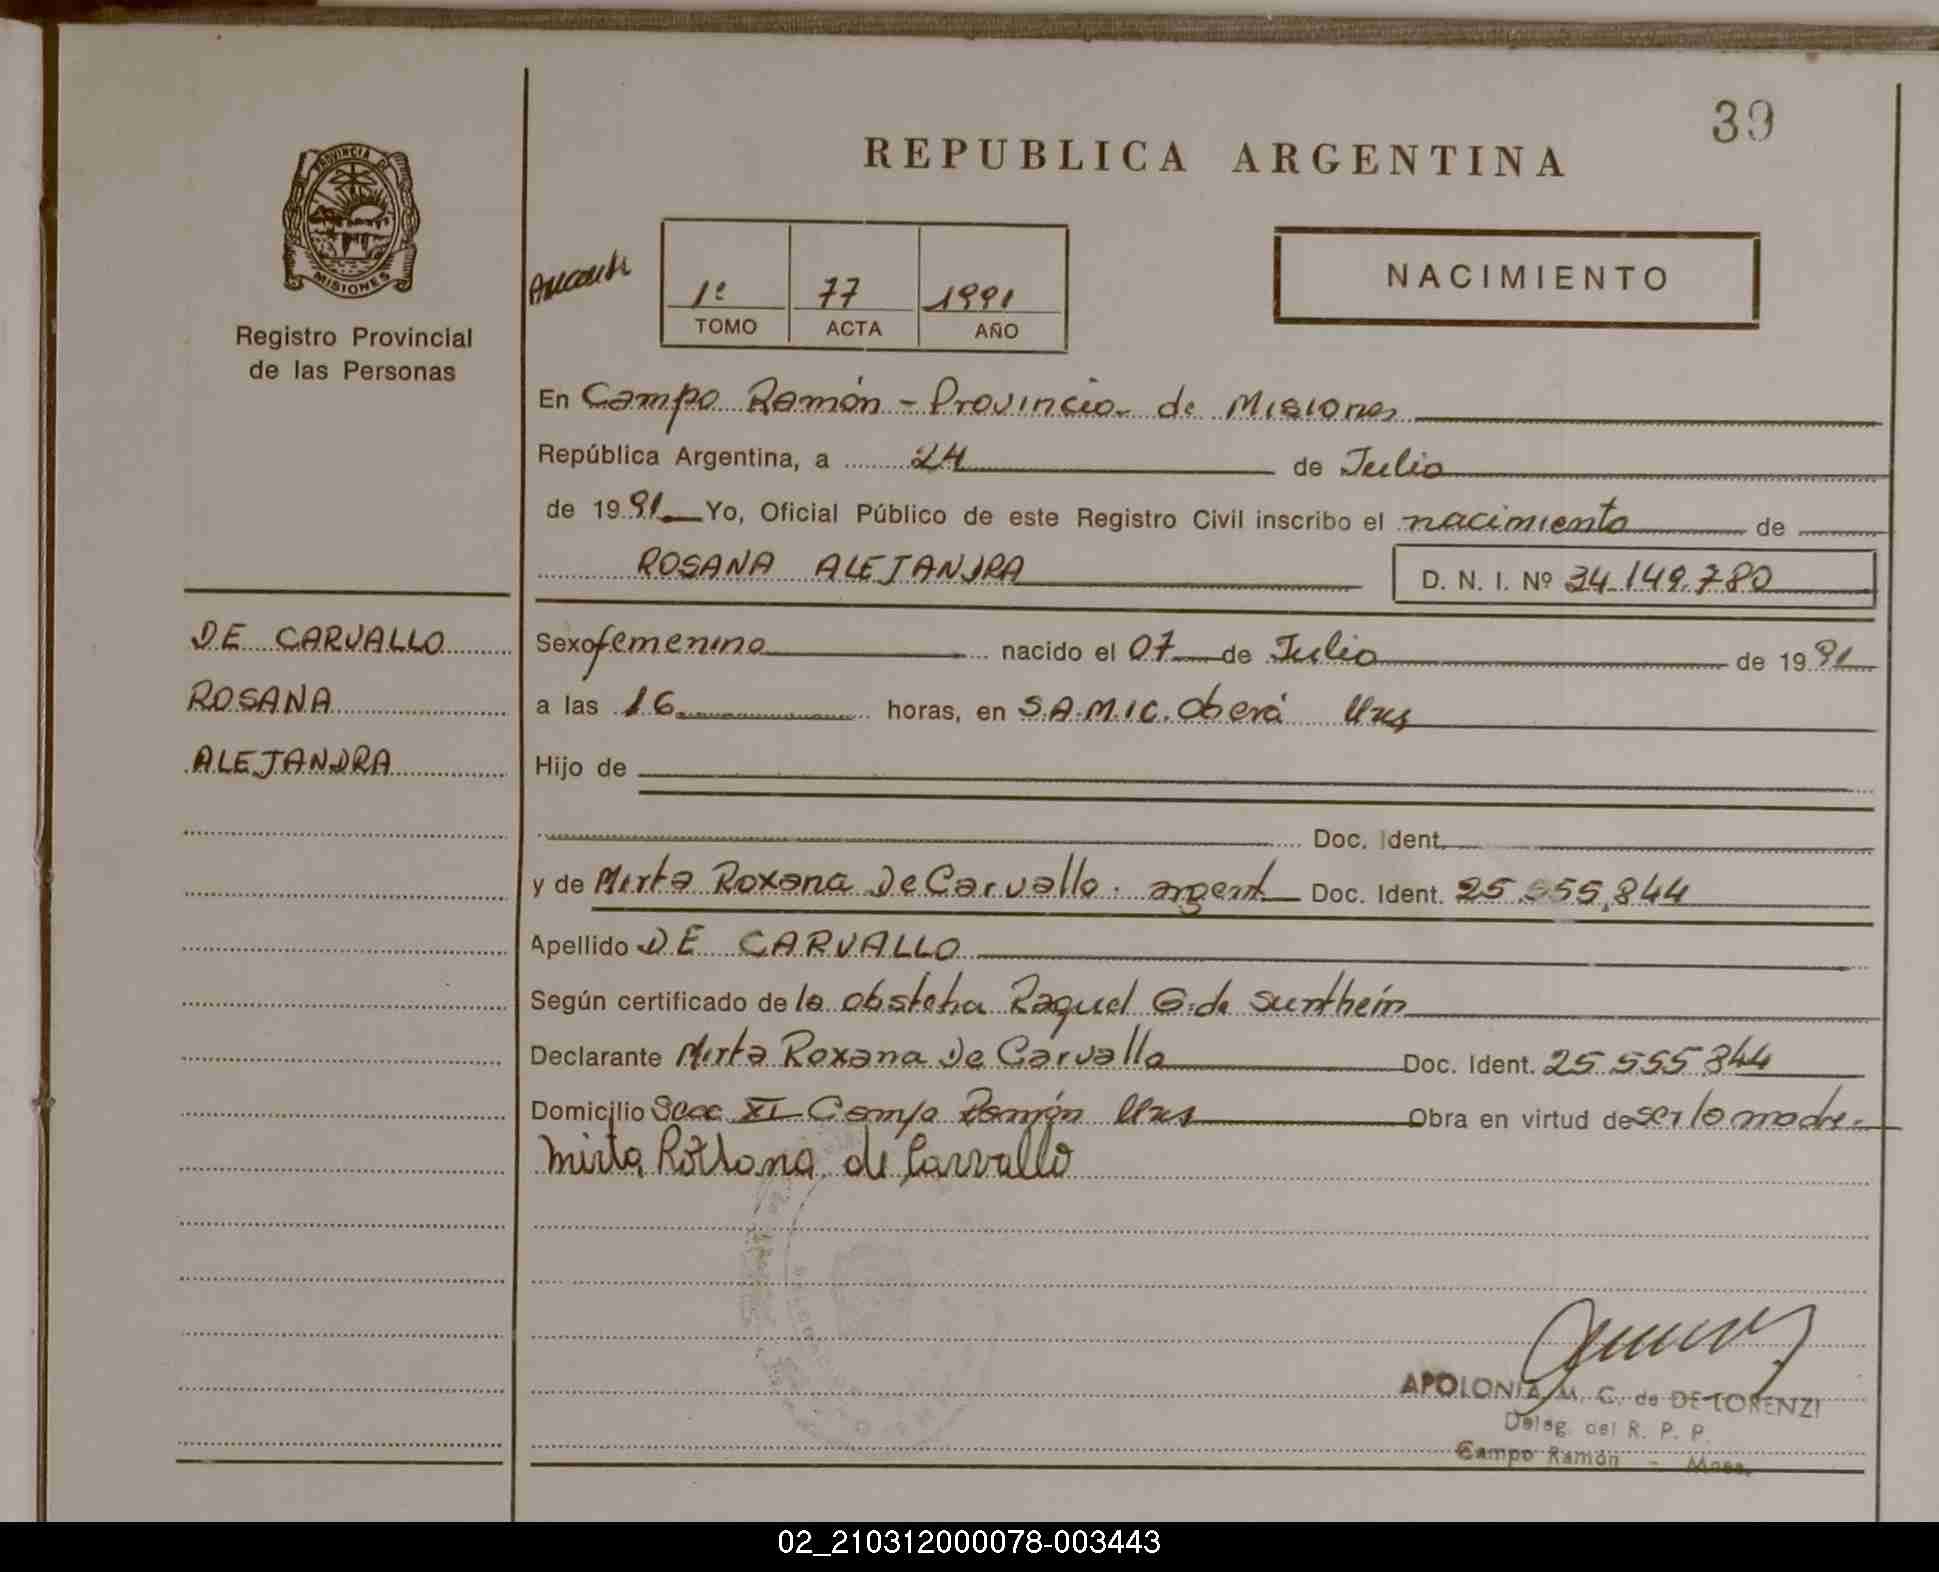 39
REPUBLICA ARGENTINA
PROVINCIA DE
MISIONES
Registro Provincial
de las Personas
1º 77 1991
TOMO ACTA AÑO
NACIMIENTO
En Campo Ramón - Provincia de Misiones
República Argentina, a 24 de Julio
de 1991 Yo, Oficial Público de este Registro Civil inscribo el nacimiento de
ROSANA ALEJANDRA D. N. I. Nº 34.149.780
DE CARVALLO
ROSANA
ALEJANDRA
Sexo femenino nacido el 07 de Julio de 1991
a las 16 horas, en S.A.M.I.C. Oberá Mns
Hijo de
Doc. Ident.
y de Mirta Roxana De Carvallo. argent Doc. Ident. 25.555.844
Apellido DE CARVALLO
Según certificado de la obstetra Raquel G. de Sunthein
Declarante Mirta Roxana De Carvallo Doc. Ident. 25.555.844
Domicilio Secc XI Campo Ramón Mns Obra en virtud de ser la madre.-
Mirta Roxana de Carvallo
APOLONIA M. C. de DE LORENZI
Deleg. del R. P. P.
Campo Ramón - Mnes.
02_210312000078-003443